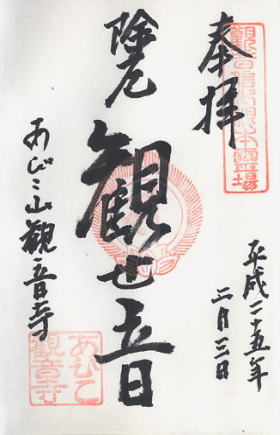 奉拝
観音信仰根本霊場
平成二十五年
二月三日
除厄
観世音
あびこ山観音寺
あびこ
観音寺